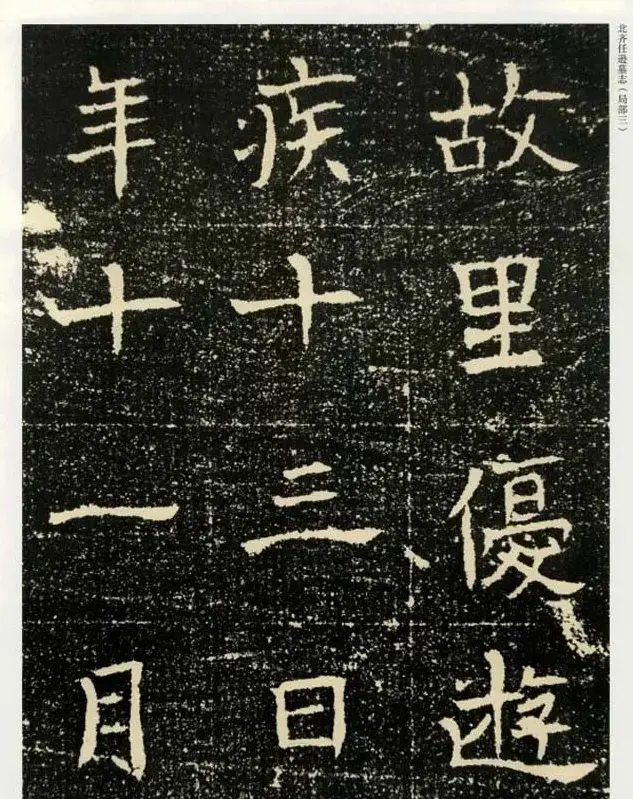 北齐任逊墓志（局部三）
故里優遊
疾十三日
年十一月